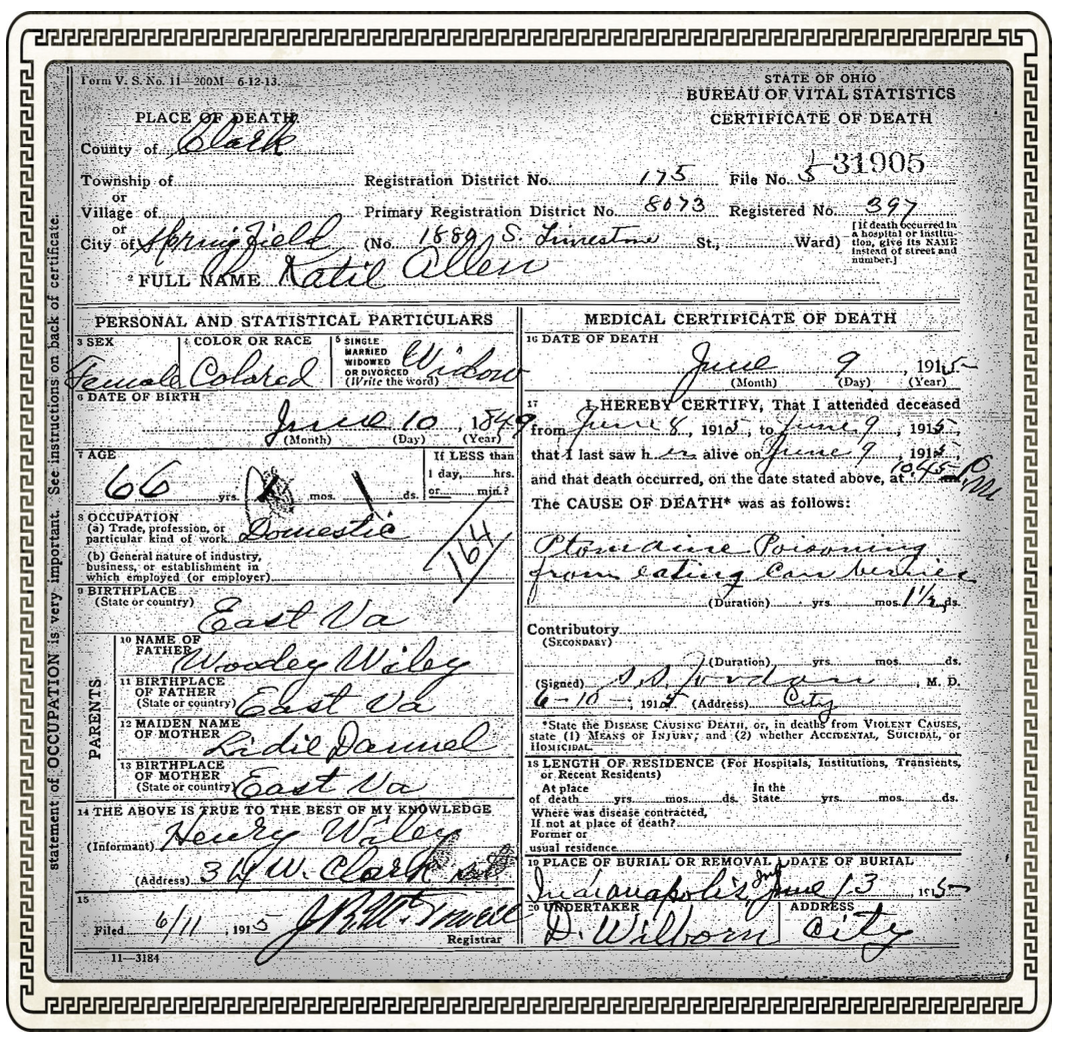 Form V. S. No. 11—200M—6-12-13.
STATE OF OHIO
BUREAU OF VITAL STATISTICS
CERTIFICATE OF DEATH
PLACE OF DEATH
County of Clark
Township of
or
Village of
or
City of Springfield
Registration District No. 175 File No. 31905
Primary Registration District No. 8073 Registered No. 397
(No. 1889 S. Limestone St., Ward)
[If death occurred in
a hospital or institu-
tion, give its NAME
instead of street and
number.]
2 FULL NAME Katie Allen
statement of OCCUPATION is very important. See instructions on back of certificate.
PERSONAL AND STATISTICAL PARTICULARS
3 SEX
Female
4 COLOR OR RACE
Colored
5 SINGLE
MARRIED
WIDOWED
OR DIVORCED
(Write the word)
Widow
6 DATE OF BIRTH
June 10, 1849
(Month) (Day) (Year)
7 AGE
66 yrs. mos. ds.
If LESS than
1 day, hrs.
or min.?
8 OCCUPATION
(a) Trade, profession, or
particular kind of work Domestic
(b) General nature of industry,
business, or establishment in
which employed (or employer)
164
9 BIRTHPLACE
(State or country)
East Va
PARENTS
10 NAME OF
FATHER
Wooley Wiley
11 BIRTHPLACE
OF FATHER
(State or country) East Va
12 MAIDEN NAME
OF MOTHER
Lidie
13 BIRTHPLACE
OF MOTHER
(State or country) East Va
14 THE ABOVE IS TRUE TO THE BEST OF MY KNOWLEDGE
(Informant) Henry Wiley
(Address) W. Clark
15
Filed 6/11, 1915
Registrar
11—3184
MEDICAL CERTIFICATE OF DEATH
16 DATE OF DEATH
June 9, 1915
(Month) (Day) (Year)
17 I HEREBY CERTIFY, That I attended deceased
from June 8, 1915, to June 9, 1915
that I last saw her alive on June 9, 1915,
and that death occurred, on the date stated above, at 10.45 P.M
The CAUSE OF DEATH* was as follows:
Ptomaine Poisoning
from eating can berries
(Duration) yrs. mos. 1½ ds.
Contributory
(SECONDARY)
(Duration) yrs. mos. ds.
(Signed) S.S. Jordan, M. D.
6-10-, 1915 (Address) City
*State the DISEASE CAUSING DEATH, or, in deaths from VIOLENT CAUSES,
state (1) MEANS OF INJURY; and (2) whether ACCIDENTAL, SUICIDAL, or
HOMICIDAL.
18 LENGTH OF RESIDENCE (For Hospitals, Institutions, Transients,
or Recent Residents)
At place
of death yrs. mos. ds.
In the
State yrs. mos. ds.
Where was disease contracted,
If not at place of death?
Former or
usual residence
19 PLACE OF BURIAL OR REMOVAL
Indianapolis, Ind
DATE OF BURIAL
June 13 1915
20 UNDERTAKER
D. Wilborn
ADDRESS
City